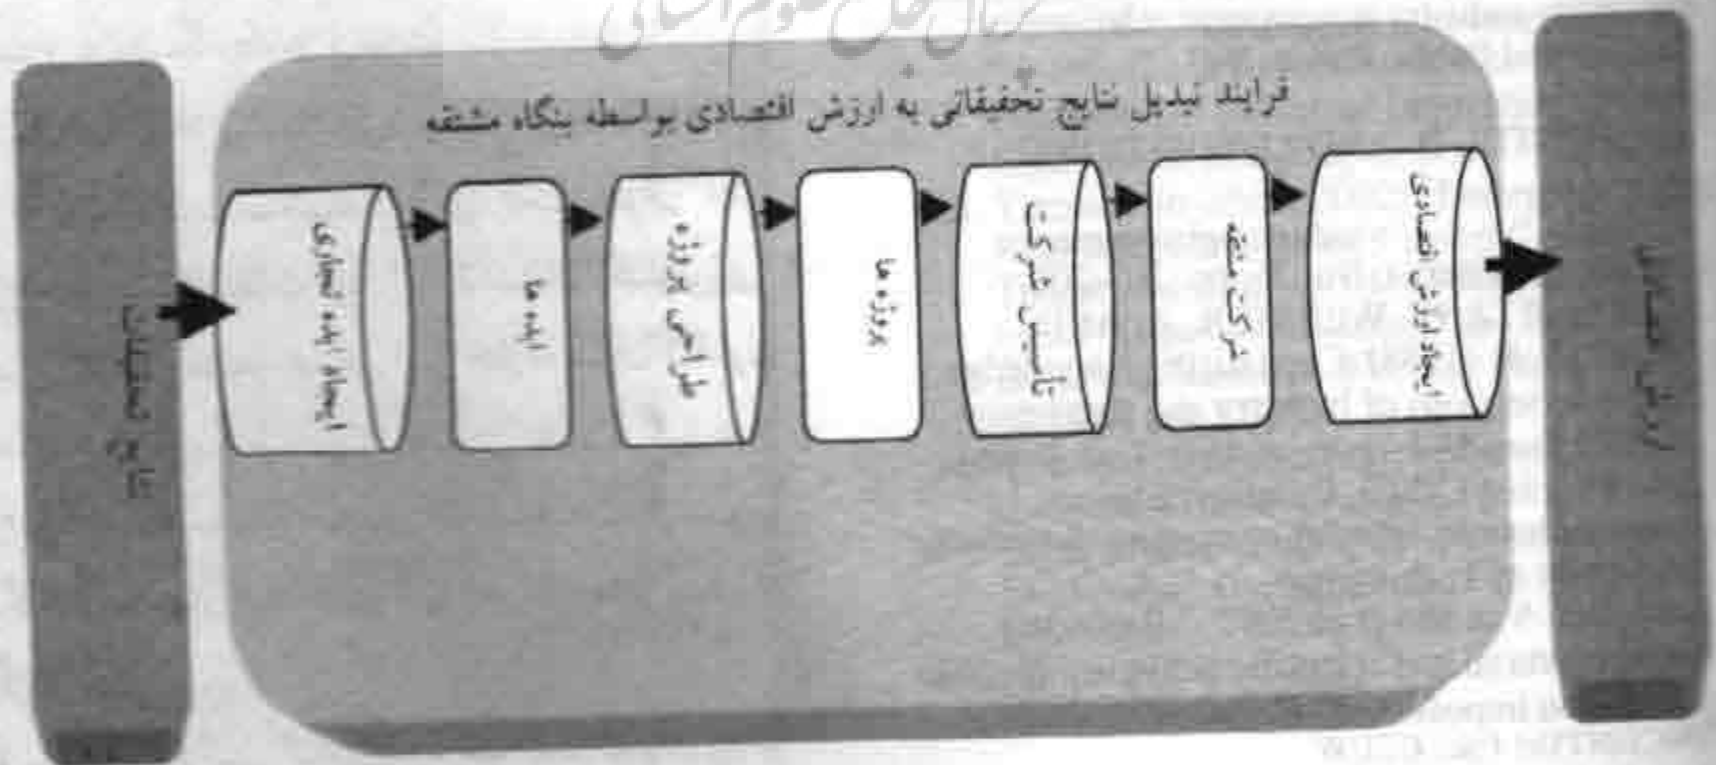 پرتال جامع علوم انسانی
فرایند تبدیل نتایج تحقیقاتی به ارزش اقتصادی بواسطه بنگاه مشتقه
نتایج تحقیقات
ایجاد ایده تجاری
ایده ها
طراحی پروژه
پروژه ها
تأسیس شرکت
شرکت مشتقه
ایجاد ارزش اقتصادی
ارزش اقتصادی